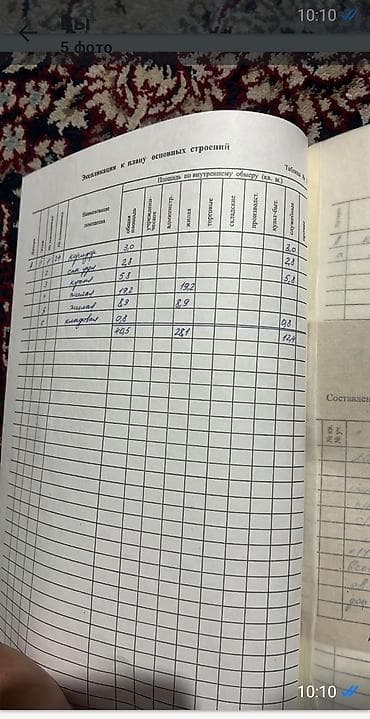 10:10
5 фото
Экспликация к плану основных строений
Таблица №
Площадь по внутреннему обмеру (кв. м.)
Наименование помещения
общая площадь
учрежденческая
администр.
жилая
торговые
складские
производст.
культ-быт.
служебные
коридор 3,0 3,0
2 сан. узел 2,8 2,8
3 кухня 5,8 5,8
4 жилая 19,2 19,2
5 жилая 8,9 8,9
кладовая 0,8 0,8
40,5 28,1 12,4
Составлен
№ кв.
10:10